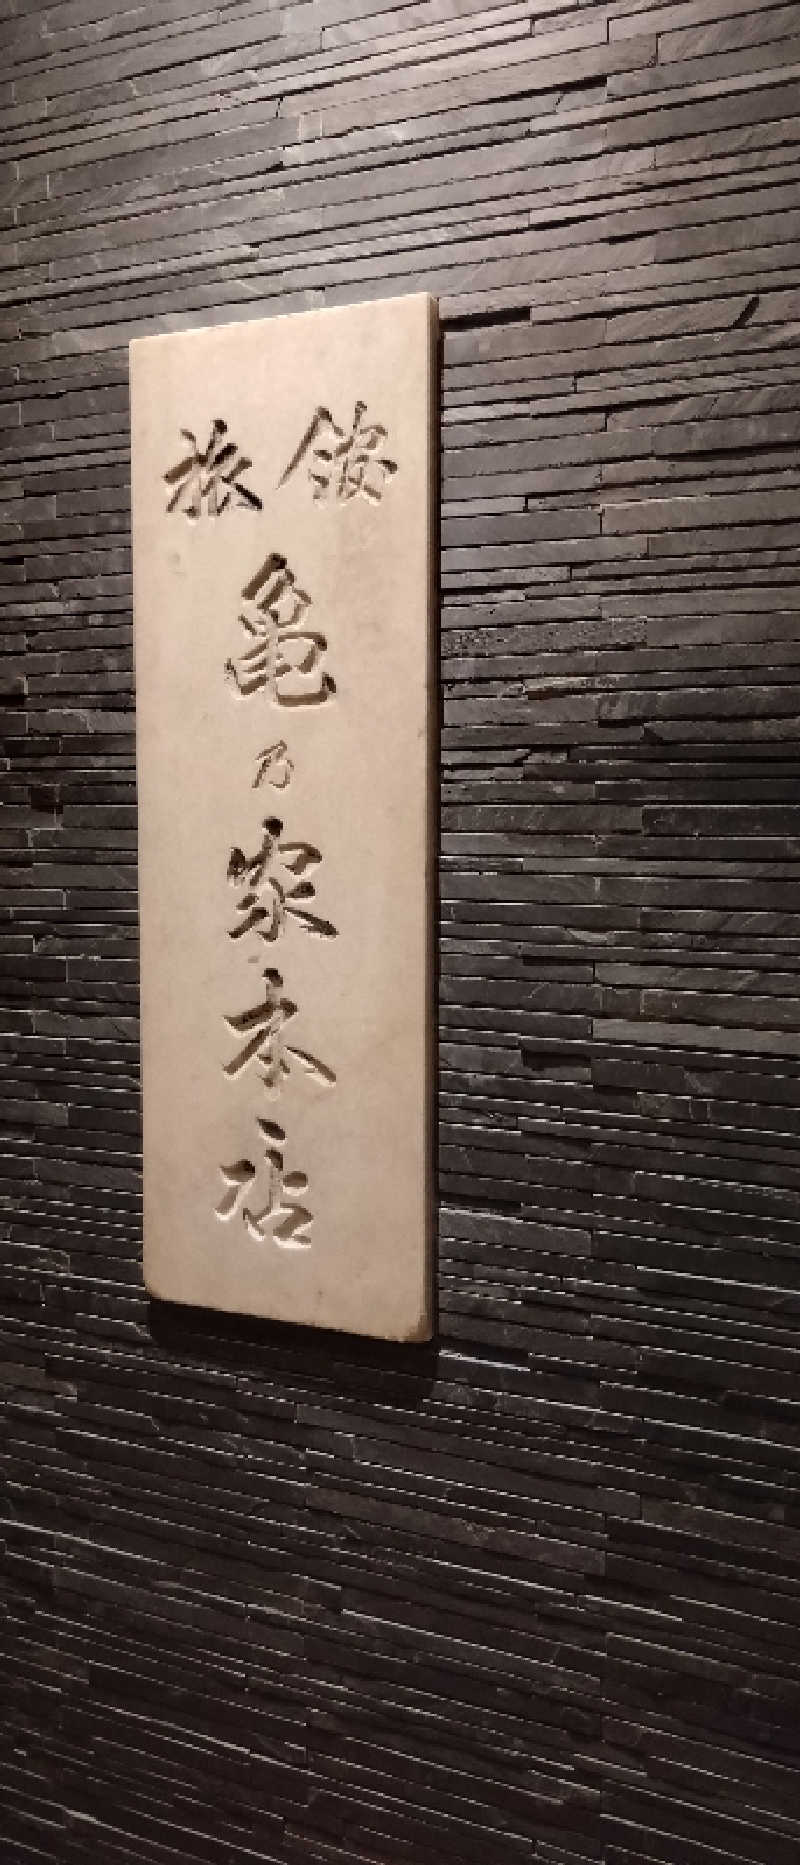 旅館
亀乃家本店